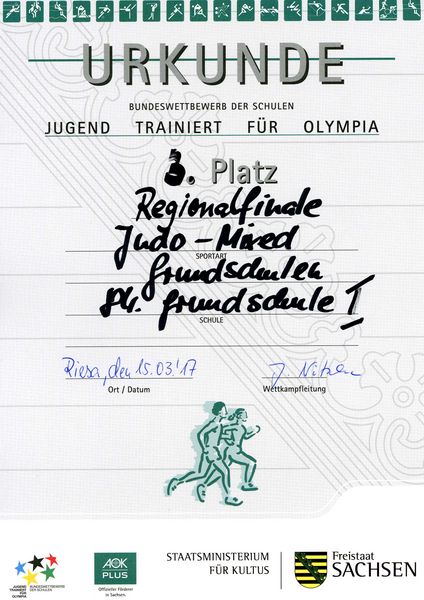 URKUNDE
BUNDESWETTBEWERB DER SCHULEN
JUGEND TRAINIERT FÜR OLYMPIA
3. Platz
Regionalfinale
Judo-Mixed
SPORTART
Grundschulen
84. Grundschule I
SCHULE
Riesa, den 15.03.'17
Ort / Datum
Wettkampfleitung
JUGEND TRAINIERT FÜR OLYMPIA
BUNDESWETTBEWERB DER SCHULEN
AOK PLUS
Offizieller Förderer in Sachsen.
STAATSMINISTERIUM
FÜR KULTUS
Freistaat
SACHSEN